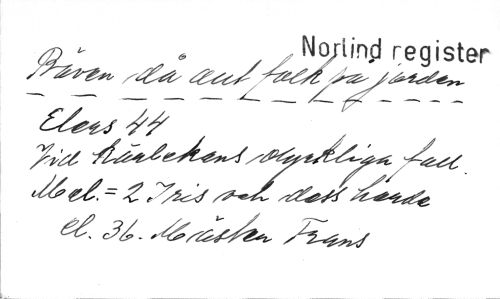 Norlind register
Även då det folk på jorden
Elers 44
Vid Kärlekens olyckliga fall.
Mel. = 2 Iris och dess harde
el. 36. Mäster Frans